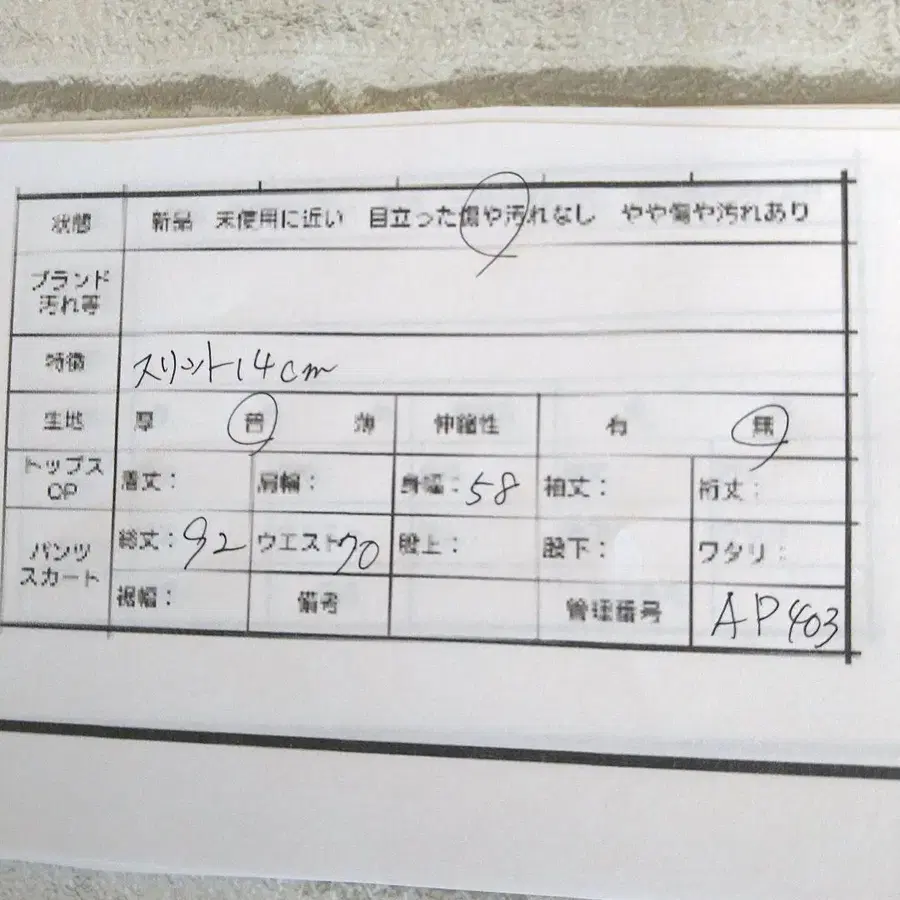 状態 新品 未使用に近い 目立った傷や汚れなし やや傷や汚れあり
ブランド
汚れ等
特徴 スリット14cm
生地 厚 普 薄 伸縮性 有 無
トップス
OP
着丈: 肩幅: 身幅:58 袖丈: 裄丈:
パンツ
スカート
総丈:92 ウエスト70 股上: 股下: ワタリ:
裾幅: 備考 管理番号 AP403